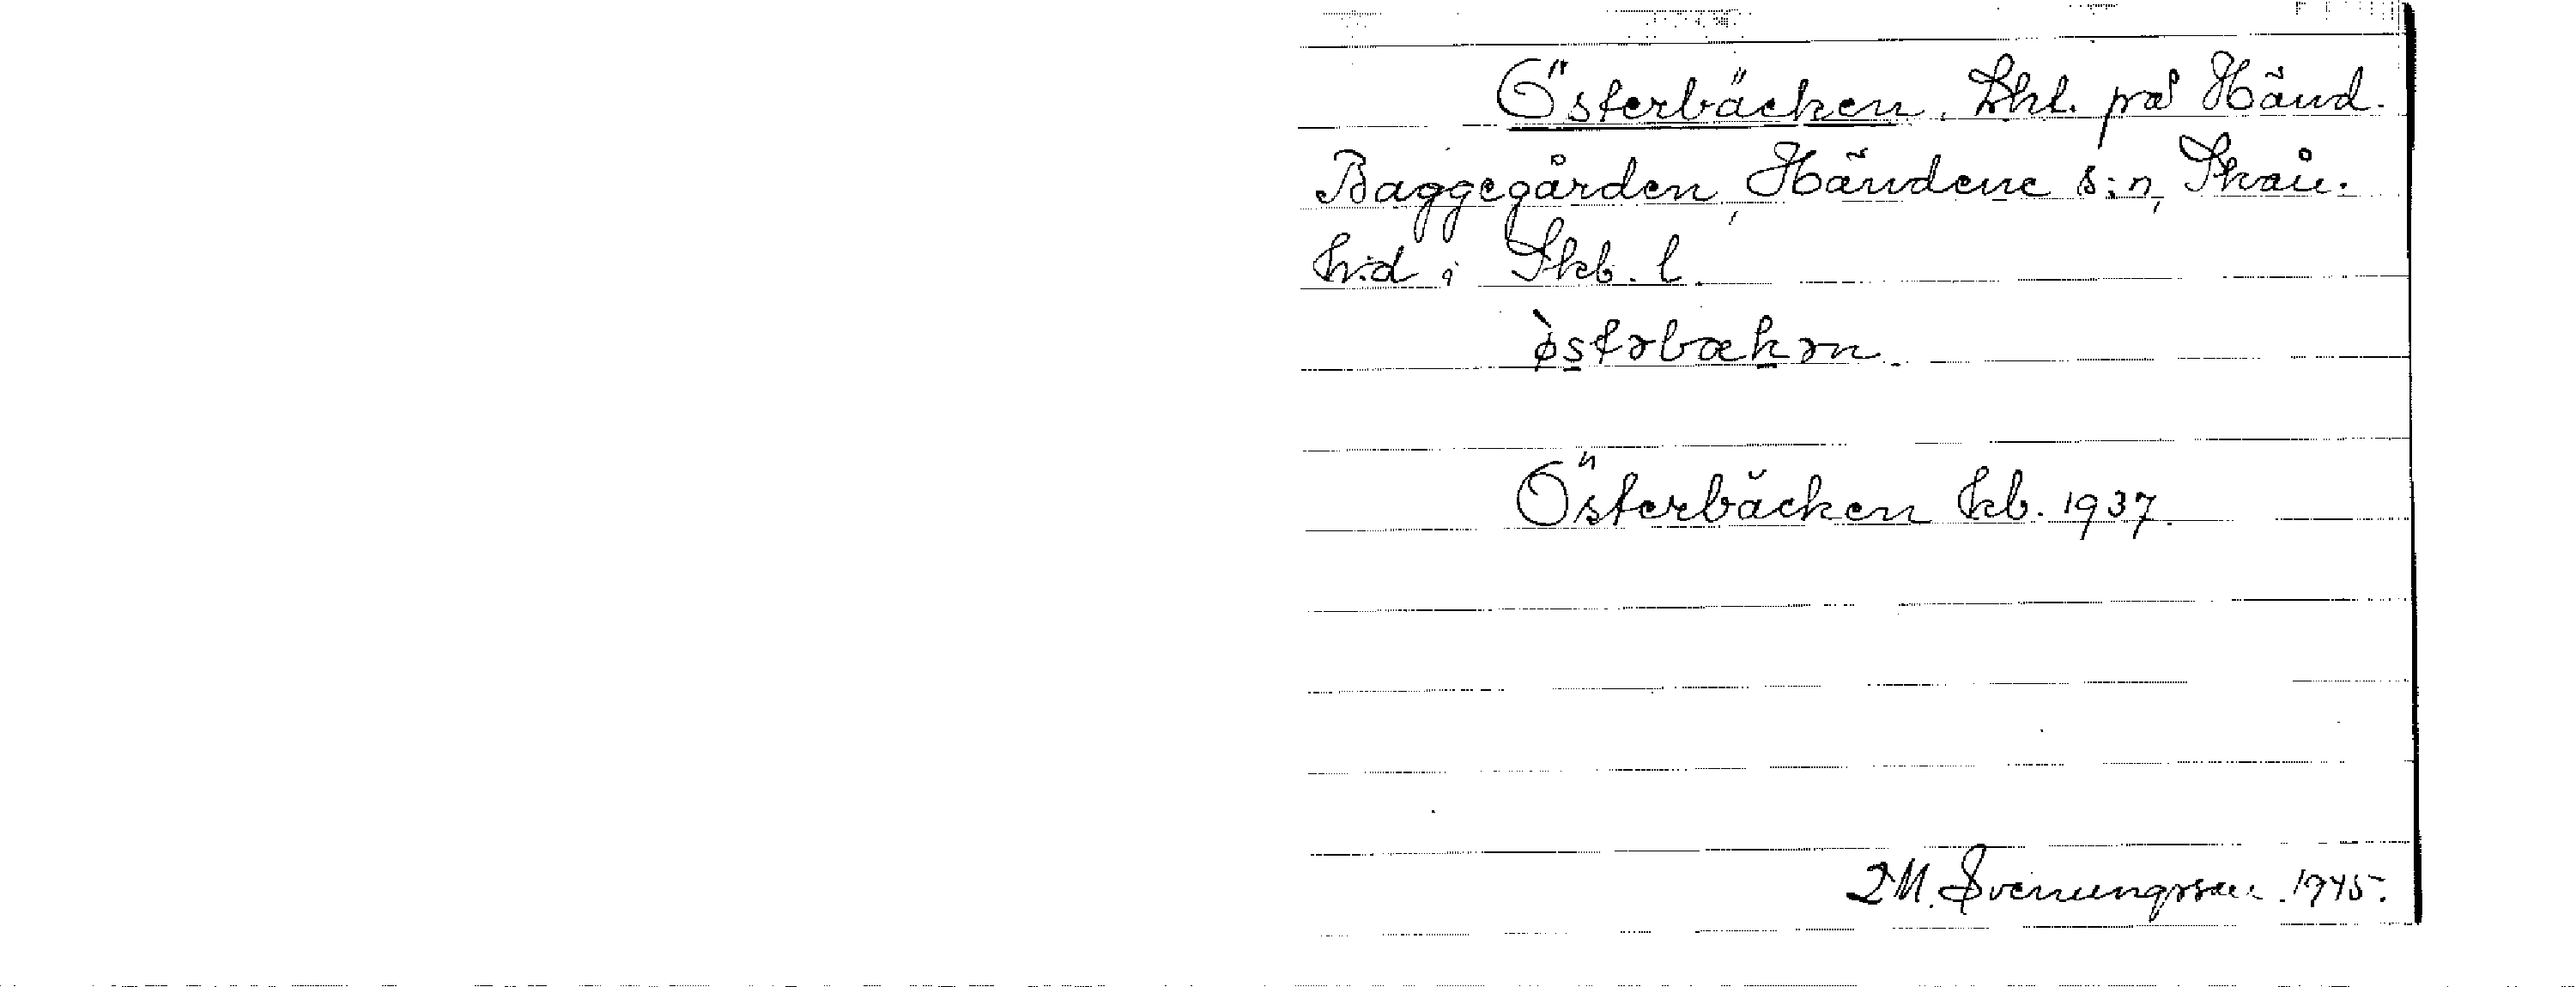 Österbäcken. Lht. på Händ.
Baggegården, Händene s:n, Skån.
h:d i Skb. l.
ø̀stərbækən.
Österbäcken kb. 1937.
Svenungsson 1945.